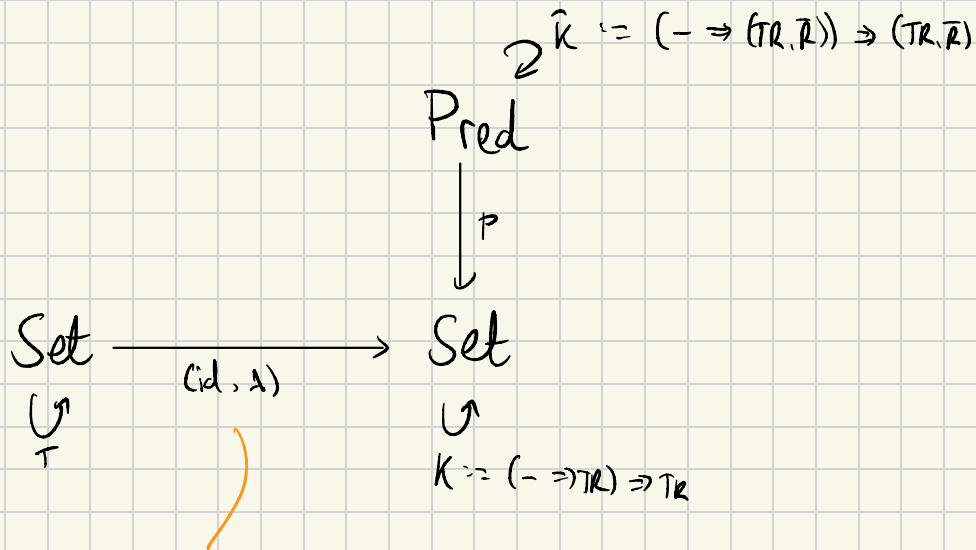 K̂ := (- ⇒ (TR, R̄)) ⇒ (TR, R̄)
Pred
p
Set
Set
(id, λ)
T
K := (- ⇒ TR) ⇒ TR